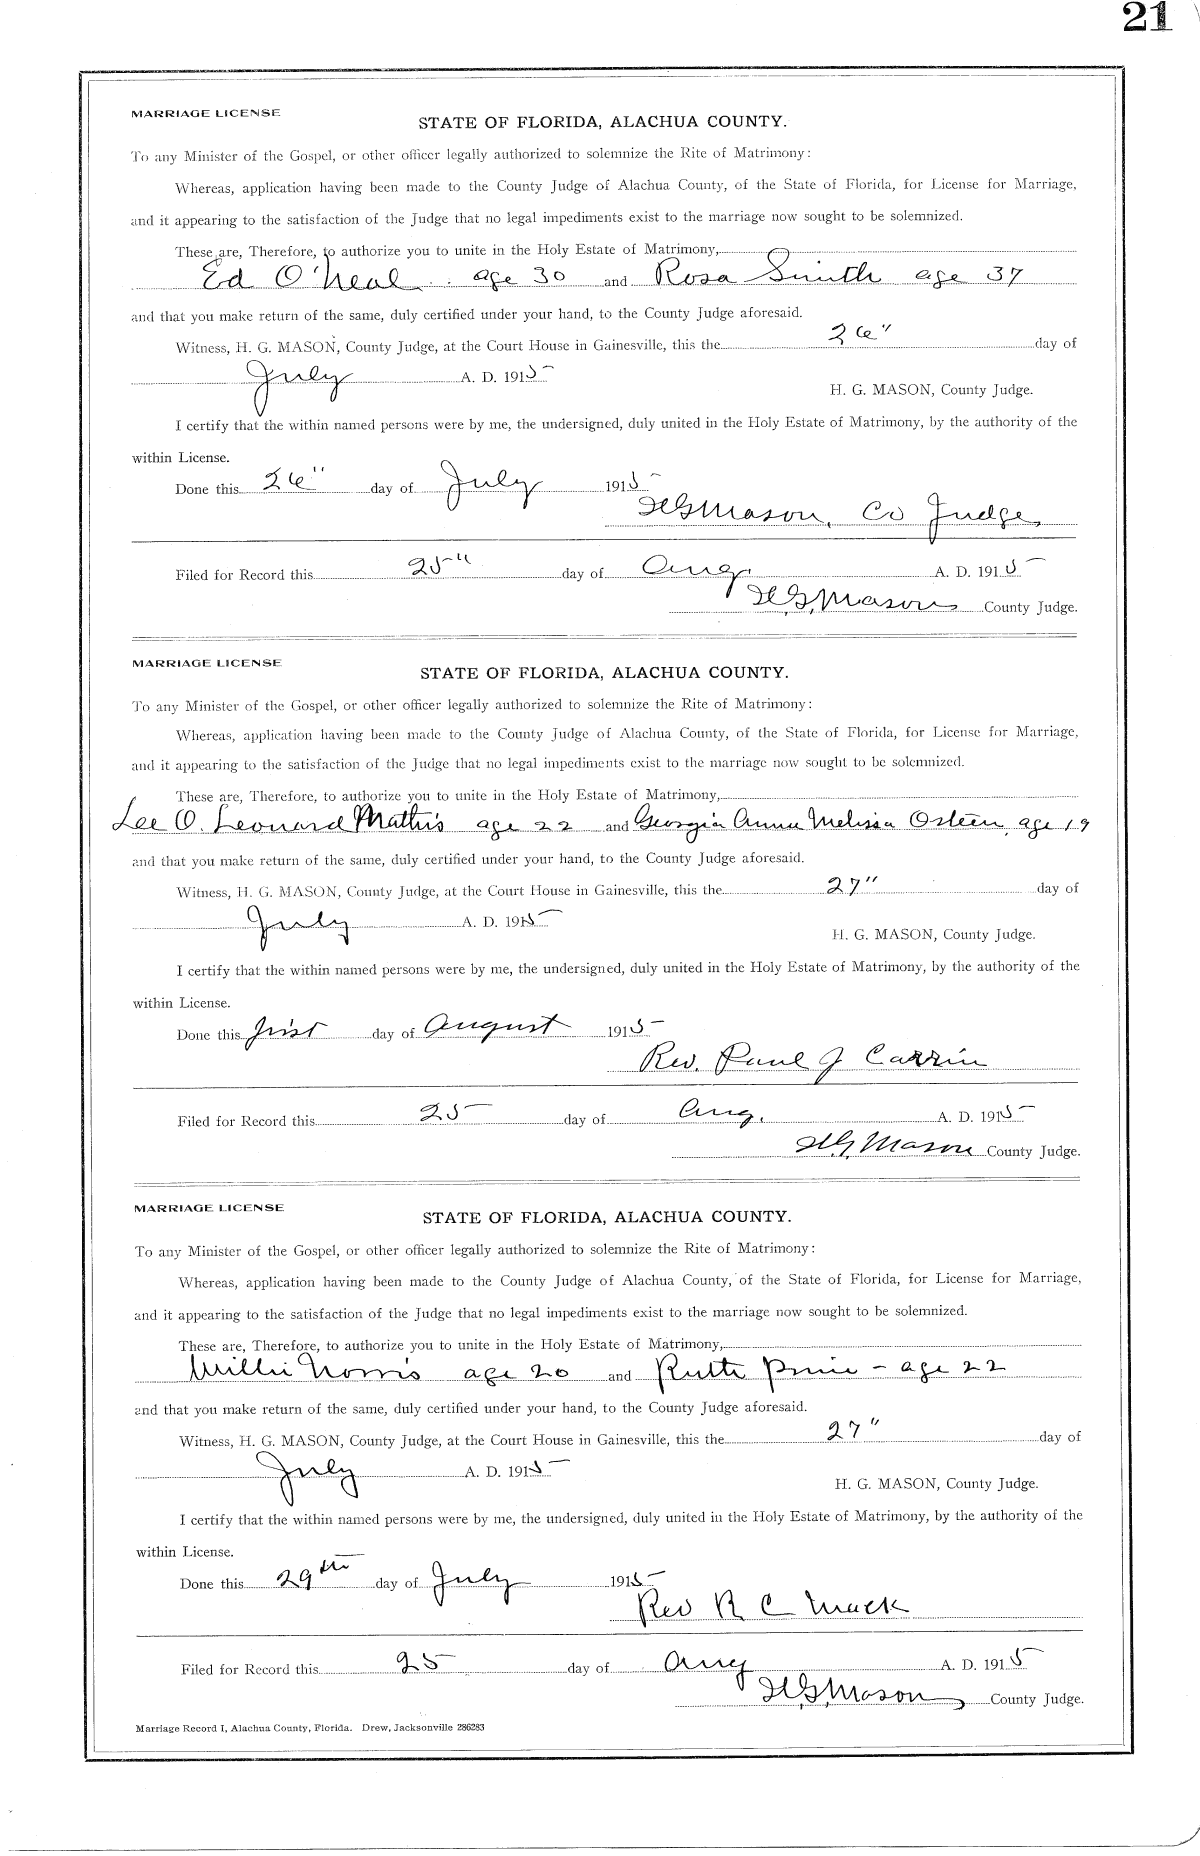 21
MARRIAGE LICENSE
STATE OF FLORIDA, ALACHUA COUNTY.
To any Minister of the Gospel, or other officer legally authorized to solemnize the Rite of Matrimony:
Whereas, application having been made to the County Judge of Alachua County, of the State of Florida, for License for Marriage,
and it appearing to the satisfaction of the Judge that no legal impediments exist to the marriage now sought to be solemnized.
These are, Therefore, to authorize you to unite in the Holy Estate of Matrimony,
Ed O'Neal age 30 and Rosa Smith age 37
and that you make return of the same, duly certified under your hand, to the County Judge aforesaid.
Witness, H. G. MASON, County Judge, at the Court House in Gainesville, this the 26" day of
July A. D. 1915
H. G. MASON, County Judge.
I certify that the within named persons were by me, the undersigned, duly united in the Holy Estate of Matrimony, by the authority of the
within License.
Done this 26" day of July 1915
H G Mason, Co Judge,
Filed for Record this 25" day of Aug. A. D. 1915
H. G. Mason County Judge.
MARRIAGE LICENSE
STATE OF FLORIDA, ALACHUA COUNTY.
To any Minister of the Gospel, or other officer legally authorized to solemnize the Rite of Matrimony:
Whereas, application having been made to the County Judge of Alachua County, of the State of Florida, for License for Marriage,
and it appearing to the satisfaction of the Judge that no legal impediments exist to the marriage now sought to be solemnized.
These are, Therefore, to authorize you to unite in the Holy Estate of Matrimony,
Lee O. Leonard Mathis age 22 and Georgia Annie Melissa Osteen, age 19
and that you make return of the same, duly certified under your hand, to the County Judge aforesaid.
Witness, H. G. MASON, County Judge, at the Court House in Gainesville, this the 27" day of
July A. D. 1915
H. G. MASON, County Judge.
I certify that the within named persons were by me, the undersigned, duly united in the Holy Estate of Matrimony, by the authority of the
within License.
Done this first day of August 1915
Rev. Paul J
Filed for Record this 25 day of Aug. A. D. 1915
H. G. Mason County Judge.
MARRIAGE LICENSE
STATE OF FLORIDA, ALACHUA COUNTY.
To any Minister of the Gospel, or other officer legally authorized to solemnize the Rite of Matrimony:
Whereas, application having been made to the County Judge of Alachua County, of the State of Florida, for License for Marriage,
and it appearing to the satisfaction of the Judge that no legal impediments exist to the marriage now sought to be solemnized.
These are, Therefore, to authorize you to unite in the Holy Estate of Matrimony,
Willie Norris age 20 and Ruth - age 22
and that you make return of the same, duly certified under your hand, to the County Judge aforesaid.
Witness, H. G. MASON, County Judge, at the Court House in Gainesville, this the 27" day of
July A. D. 1915
H. G. MASON, County Judge.
I certify that the within named persons were by me, the undersigned, duly united in the Holy Estate of Matrimony, by the authority of the
within License.
Done this 29th day of July 1915
Rev R C Mack
Filed for Record this 25 day of Aug A. D. 1915
H. G. Mason County Judge.
Marriage Record I, Alachua County, Florida. Drew, Jacksonville 286283